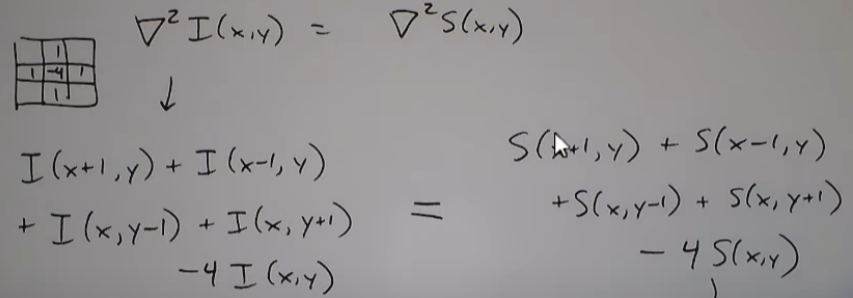 ∇²I(x,y) = ∇²S(x,y)
1
1 -4 1
1
↓
I(x+1,y) + I(x-1,y)
+ I(x,y-1) + I(x,y+1)
-4 I(x,y)
=
S(x+1,y) + S(x-1,y)
+S(x,y-1) + S(x,y+1)
- 4 S(x,y)